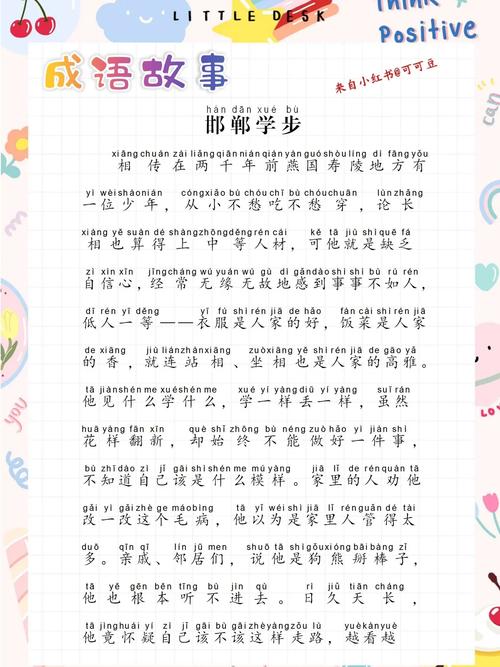 LITTLE DESK
Think
Positive
成语故事
来自小红书@可可豆
hán dān xué bù
邯郸学步
xiāng chuán zài liǎng qiān nián qián yàn guó shòu líng dì fāng yǒu
相传在两千年前燕国寿陵地方有
yī wèi shào nián cóng xiǎo bù chóu chī bù chóu chuān lùn zhǎng
一位少年，从小不愁吃不愁穿，论长
xiàng yě suàn dé shàng zhōng děng rén cái kě tā jiù shì quē fá
相也算得上中等人材，可他就是缺乏
zì xìn xīn jīng cháng wú yuán wú gù dì gǎn dào shì shì bù rú rén
自信心，经常无缘无故地感到事事不如人，
dī rén yī děng yī fú shì rén jiā de hǎo fàn cài shì rén jiā
低人一等——衣服是人家的好，饭菜是人家
de xiāng jiù lián zhàn xiāng zuò xiāng yě shì rén jiā de gāo yǎ
的香，就连站相、坐相也是人家的高雅。
tā jiàn shén me xué shén me xué yí yàng diū yí yàng suī rán
他见什么学什么，学一样丢一样，虽然
huā yàng fān xīn què shǐ zhōng bù néng zuò hǎo yī jiàn shì
花样翻新，却始终不能做好一件事，
bù zhī dào zì jǐ gāi shì shén me mú yàng jiā lǐ de rén quàn tā
不知道自己该是什么模样。家里的人劝他
gǎi yī gǎi zhè ge máo bìng tā yǐ wéi shì jiā lǐ rén guǎn dé tài
改一改这个毛病，他以为是家里人管得太
duō qīn qī lín jū men shuō tā shì gǒu xióng bāi bàng zǐ
多。亲戚、邻居们，说他是狗熊掰棒子，
tā yě gēn běn tīng bù jìn qù rì jiǔ tiān cháng
他也根本听不进去。日久天长，
tā jìng huái yí zì jǐ gāi bù gāi zhè yàng zǒu lù yuè kàn yuè
他竟怀疑自己该不该这样走路，越看越
can
you